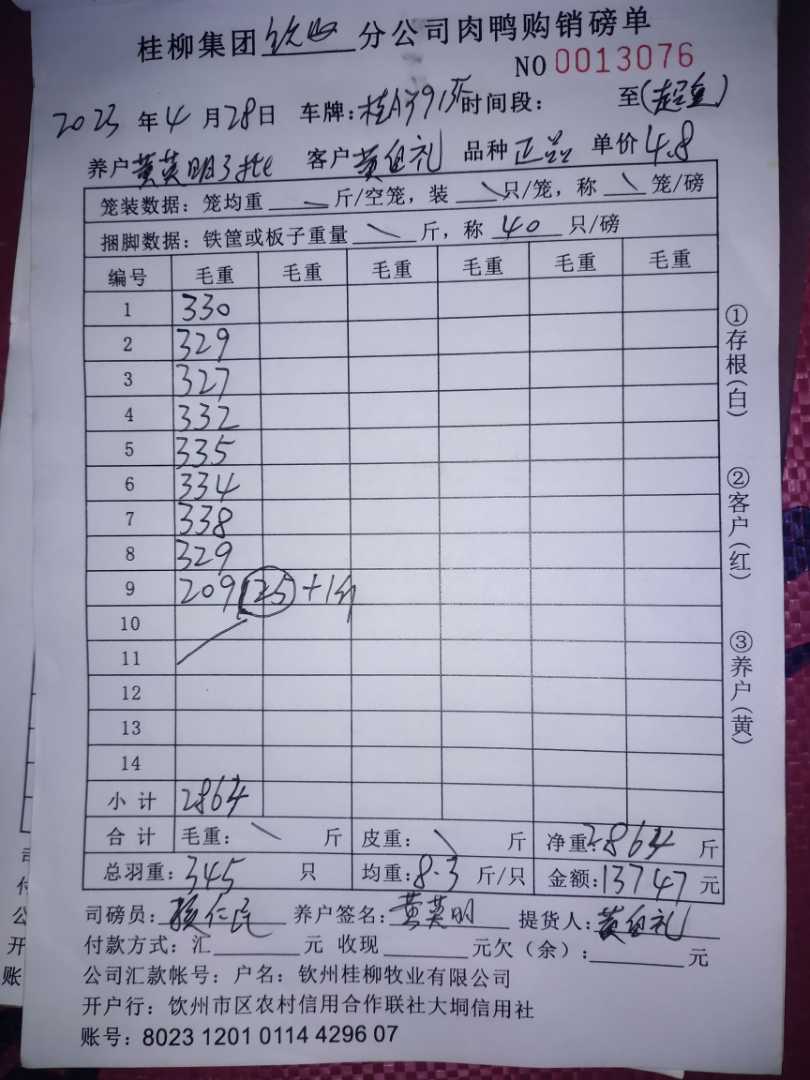 桂柳集团 钦州 分公司肉鸭购销磅单
NO 0013076
2023 年 4 月 28 日 车牌: 时间段: 至
养户 黄英明 客户 黄 礼 品种 正品 单价 4.8
笼装数据: 笼均重 \ 斤/空笼, 装 \ 只/笼, 称 \ 笼/磅
捆脚数据: 铁筐或板子重量 \ 斤, 称 40 只/磅
编号 毛重 毛重 毛重 毛重 毛重 毛重
1 330
2 329
3 327
4 332
5 335
6 334
7 338
8 329
9 209 (25) +1
10
11
12
13
14
小 计 2864
合 计 毛重: \ 斤 皮重: \ 斤 净重: 2864 斤
总羽重: 345 只 均重: 8.3 斤/只 金额: 13747 元
司磅员: 仁民 养户签名: 黄英明 提货人: 黄 礼
付款方式: 汇 元 收现 元欠(余): 元
公司汇款帐号: 户名: 钦州桂柳牧业有限公司
开户行: 钦州市区农村信用合作联社大垌信用社
账号: 8023 1201 0114 4296 07
①存根(白)
②客户(红)
③养户(黄)
司
付
公
开
账